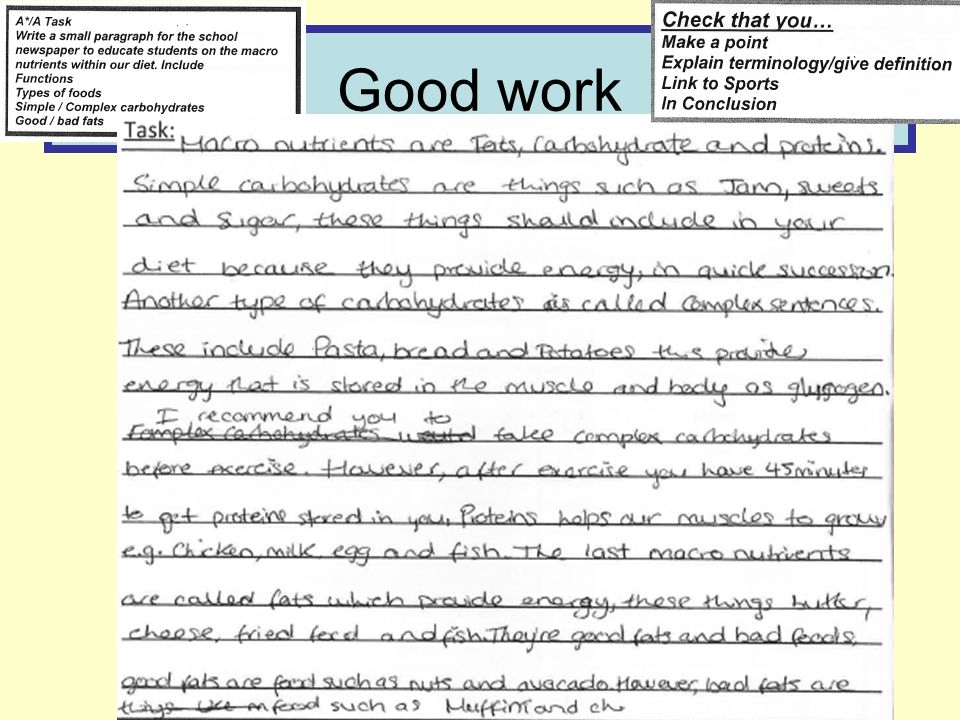 A*/A Task
Write a small paragraph for the school
newspaper to educate students on the macro
nutrients within our diet. Include
Functions
Types of foods
Simple / Complex carbohydrates
Good / bad fats
Good work
Check that you…
Make a point
Explain terminology/give definition
Link to Sports
In Conclusion
Task: Macro nutrients are Fats, Carbohydrate and proteins.
Simple carbohydrates are things such as Jam, sweets
and Sugar, these things should include in your
diet because they provide energy, in quick succession.
Another type of carbohydrates is called Complex sentences.
These include Pasta, bread and Potatoes this provides
energy that is stored in the muscle and body as glygogen.
I recommend you to
Complex carbohydrates would take complex carbohydrates
before exercise. However, after exercise you have 45 minutes
to get proteins stored in you. Proteins helps our muscles to grow
e.g. Chicken, milk, egg and fish. The last macro nutrients
are called fats which provide energy, these things butter,
cheese, fried food and fish. They're good fats and bad foods,
good fats are food such as nuts and avacado. However, bad fats are
things like food such as Muffin and ch